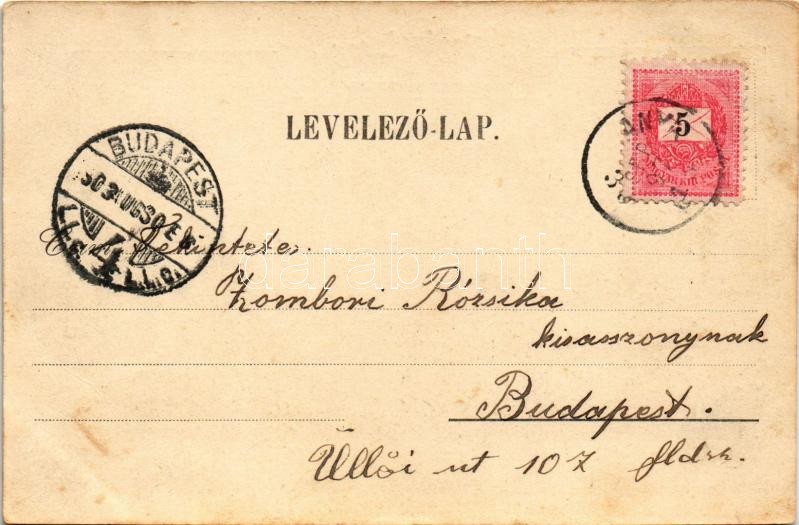 LEVELEZŐ-LAP.
5
BUDAPEST
Tekintetes
Zombori Rózsika
kisasszonynak
Budapest.
Üllői ut 107 fldsz.
darabanth